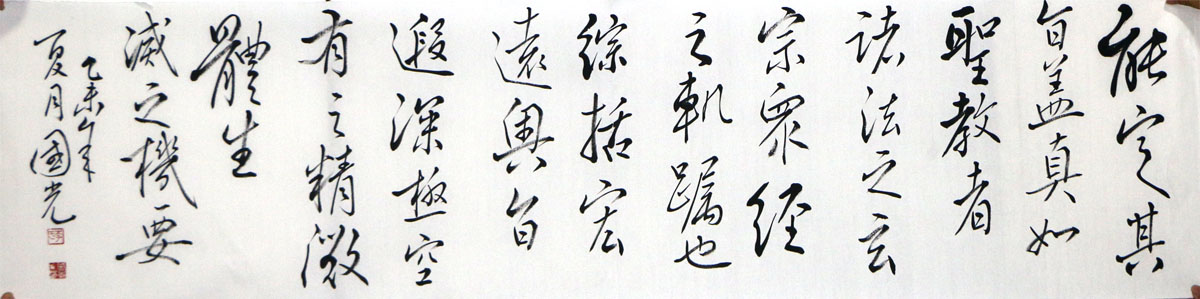 能定其
旨盖真如
聖教者
诸法之玄
宗眾经
之軌躅也
综括宏
遠奥旨
遐深極空
有之精微
體生
滅之機要
乙未年
夏月國光